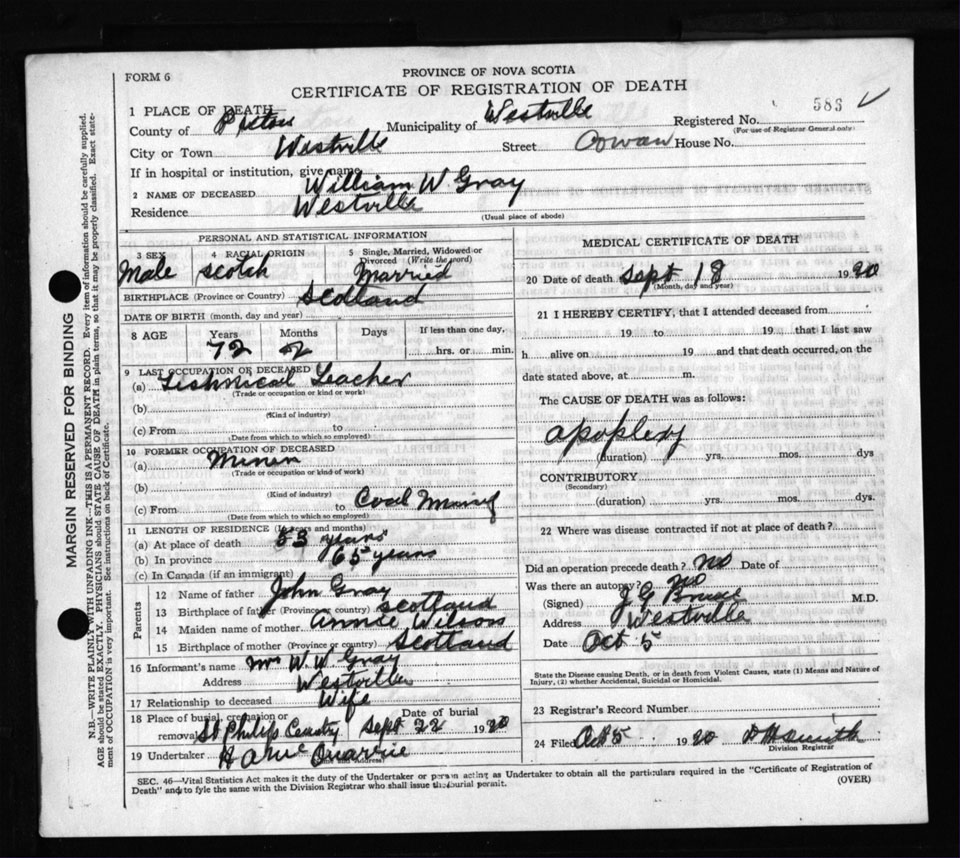 FORM 6
PROVINCE OF NOVA SCOTIA
CERTIFICATE OF REGISTRATION OF DEATH
583
1 PLACE OF DEATH
County of Pictou Municipality of Westville Registered No.
(For use of Registrar General only)
City or Town Westville Street Cowan House No.
If in hospital or institution, give name
2 NAME OF DECEASED William W Gray
Residence Westville
(Usual place of abode)
PERSONAL AND STATISTICAL INFORMATION
3 SEX 4 RACIAL ORIGIN 5 Single, Married, Widowed or Divorced (Write the word)
Male Scotch Married
BIRTHPLACE (Province or Country) Scotland
DATE OF BIRTH (month, day and year)
8 AGE Years Months Days If less than one day,
72 2 hrs. or min.
9 LAST OCCUPATION OF DECEASED
(a) Teshnical Teacher
(Trade or occupation or kind of work)
(b)
(Kind of industry)
(c) From to
(Date from which to which so employed)
10 FORMER OCCUPATION OF DECEASED
(a) Miner
(Trade or occupation or kind of work)
(b)
(Kind of industry)
(c) From to Coal Mining
(Date from which to which so employed)
11 LENGTH OF RESIDENCE (In years and months)
(a) At place of death 53 years
(b) In province 65 years
(c) In Canada (if an immigrant)
Parents
12 Name of father John Gray
13 Birthplace of father (Province or country) Scotland
14 Maiden name of mother Annie Wilson
15 Birthplace of mother (Province or country) Scotland
16 Informant's name Mrs W. W. Gray
Address Westville
17 Relationship to deceased Wife
18 Place of burial, cremation or removal St Philips Date of burial Sept 22 1920
19 Undertaker
MEDICAL CERTIFICATE OF DEATH
20 Date of death Sept 18 1920
(Month, day and year)
21 I HEREBY CERTIFY, that I attended deceased from
19 to 19 that I last saw
h alive on 19 and that death occurred, on the
date stated above, at m.
The CAUSE OF DEATH was as follows:
apoplexy
(duration) yrs. mos. dys
CONTRIBUTORY
(Secondary)
(duration) yrs. mos. dys.
22 Where was disease contracted if not at place of death?
Did an operation precede death? No Date of
Was there an autopsy? No
(Signed) J G M.D.
Address Westville
Date Oct 5
State the Disease causing Death, or in death from Violent Causes, state (1) Means and Nature of
Injury, (2) whether Accidental, Suicidal or Homicidal.
23 Registrar's Record Number
24 Filed Oct 5 1920 D H Smith
Division Registrar
SEC. 46—Vital Statistics Act makes it the duty of the Undertaker or person acting as Undertaker to obtain all the particulars required in the "Certificate of Registration of
Death" and to fyle the same with the Division Registrar who shall issue the burial permit.
(OVER)
MARGIN RESERVED FOR BINDING
N.B.—WRITE PLAINLY WITH UNFADING INK—THIS IS A PERMANENT RECORD. Every item of information should be carefully supplied.
AGE should be stated EXACTLY. PHYSICIANS should STATE CAUSE OF DEATH in plain terms, so that it may be properly classified. Exact statement of OCCUPATION is very important. See instructions on back of Certificate.